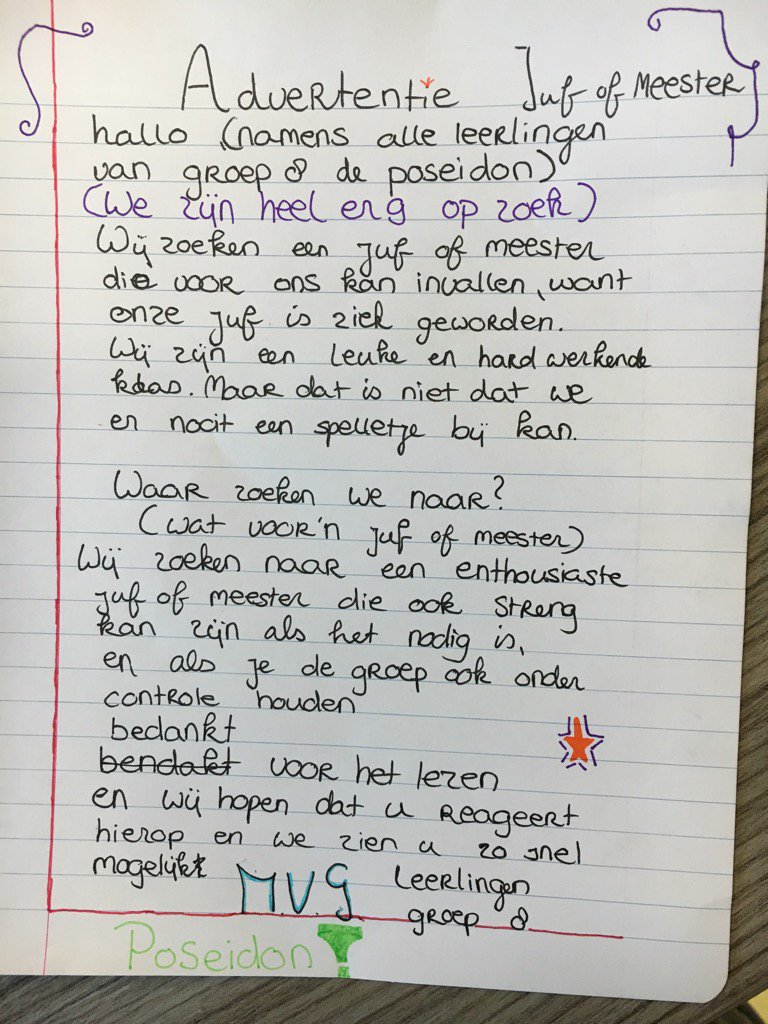 Advertentie Juf of Meester
hallo (namens alle leerlingen
van groep 8 de poseidon)
(We zijn heel erg op zoek)
Wij zoeken een juf of meester
die voor ons kan invallen, want
onze juf is ziek geworden.
Wij zijn een leuke en hard werkende
klas. Maar dat is niet dat we
er nooit een spelletje bij kan.
Waar zoeken we naar?
(wat voor'n juf of meester)
Wij zoeken naar een enthousiaste
juf of meester die ook streng
kan zijn als het nodig is,
en als je de groep ook onder
controle houden
bedankt
bendakt voor het lezen
en wij hopen dat u reageert
hierop en we zien u zo snel
mogelijk
M.V.G Leerlingen
groep 8
Poseidon